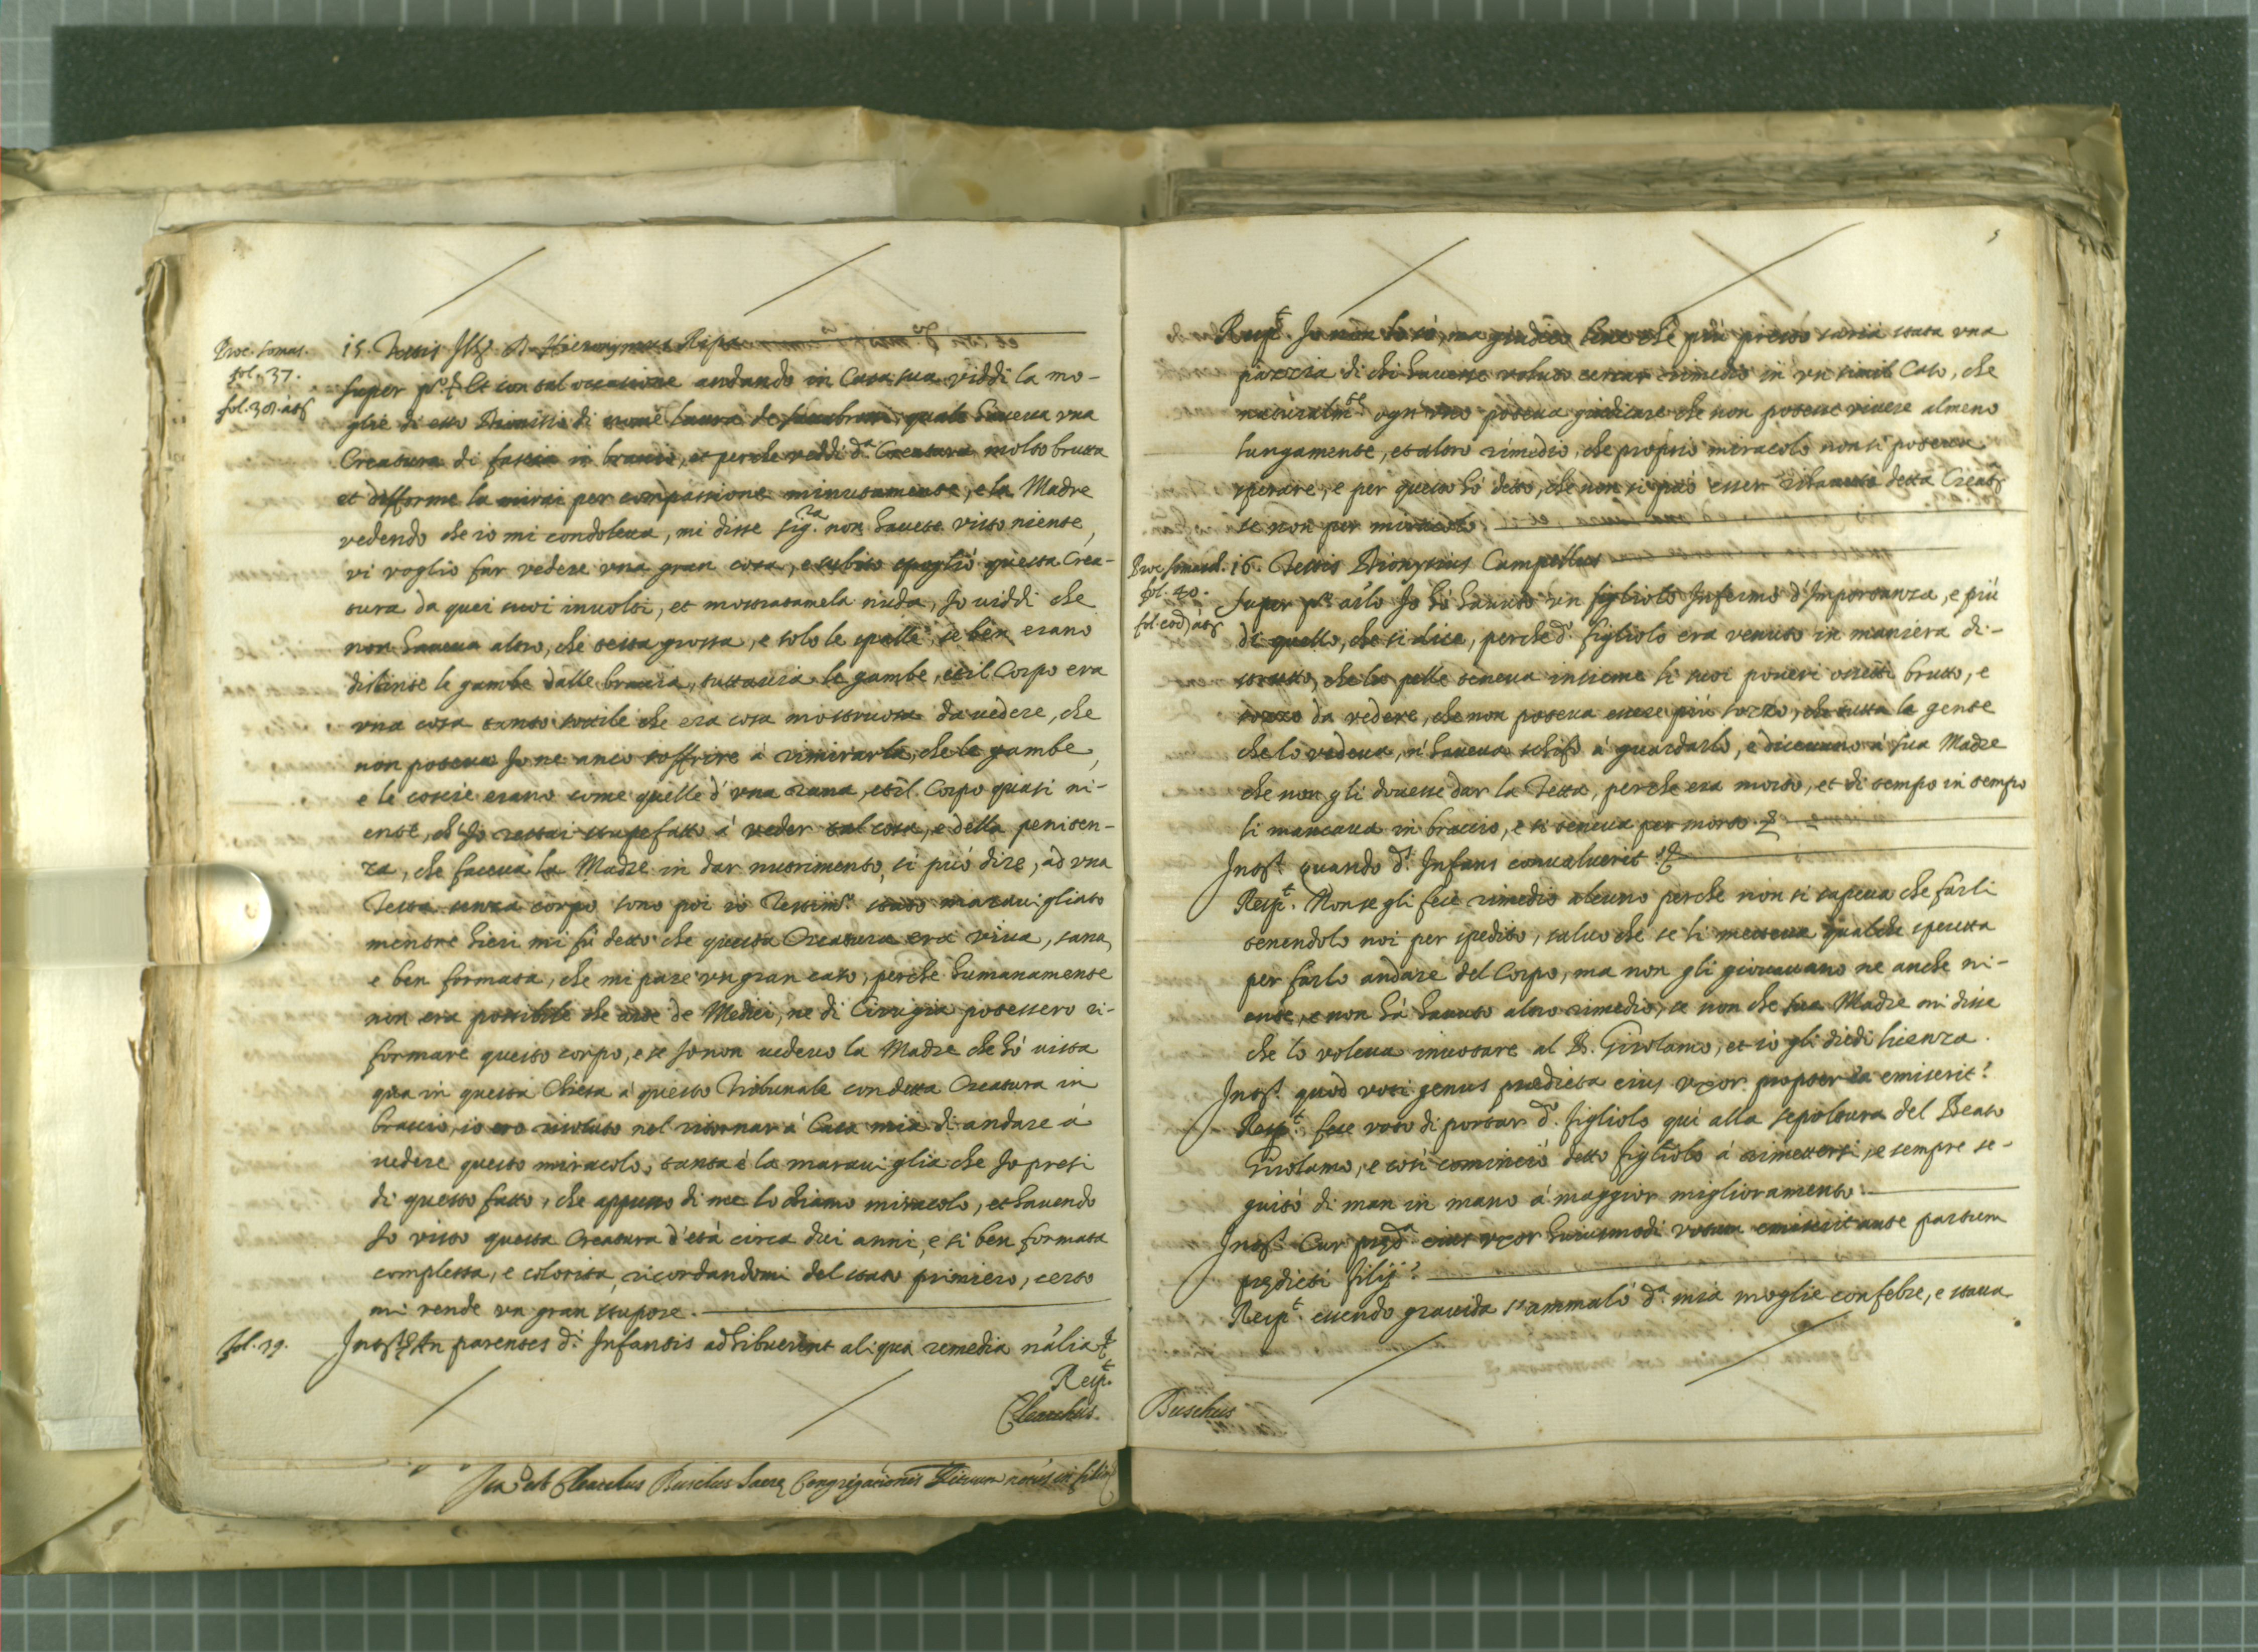 Proc. somas. 15. Testis Ill. D. Hieronymus Ripa
fol. 37.
fol. 38. att
super p.º Et con tal occasione andando in Casa sua viddi la mo-
glie di esso Dionisio di nome Laura de quale haueua vna
Creatura di fascia in braccio, et perche veddi d.ª Creatura molto brutta
et difforme la mirai per compassione minutamente, e la Madre
vedendo che io mi condoleua, mi disse sig.ra non hauete visto niente,
vi voglio far vedere vna gran cosa, e subito spogliò questa Crea-
tura da quei suoi inuolti, et mostratamela nuda, Io viddi che
non haueua altro, che testa grossa, e solo le spalle, se ben erano
distinte le gambe dalle braccia, tuttauia le gambe, et il Corpo era
vna cosa tanto sottile che era cosa mostruosa da uedere, che
non poteua Io ne anco soffrire à rimirarla, che le gambe,
e le coscie erano come quelle d'vna rana, et il Corpo quasi ni-
ente, ch'Io restai stupefatto à veder tal cosa, e della peniten-
za, che faceua la Madre in dar nutrimento, si può dire, ad vna
Testa senza corpo sono poi io Testim.º stato marauigliato
mentre hieri mi fù detto che questa Creatura era viua, sana,
e ben formata, che mi pare vn gran caso, perche humanamente
non era possibile che arte de Medici, ne di Cirugia potessero ri-
formare questo corpo, e se Io non uedeuo la Madre che hò vista
qua in questa Chiesa à questo Tribunale con detta Creatura in
braccio, io ero risoluto nel ritornar à Casa mia di andare à
uedere questo miracolo, tanta è la marauiglia che Io presi
di questo fatto, che appunto di me lo chiamo miracolo, et hauendo
Io visto questa Creatura d'età circa dui anni, e sì ben formata
complessa, e colorita, ricordandomi del stato primiero, certo
mi rende vn gran stupore.
fol. 39. Int. An parentes d.i Infantis adhibuerint aliqua remedia nãlia
Resp.t
Clearchus.
Ita est Clearchus Buschus Sacræ Congregationis Rituum
5
Resp.t Io non lo sò, ma giudico bene che più presto saria stata vna
pazzia di chi hauesse voluto cercar rimedio in vn simil Caso, che
naturalm.te ogn'vno poteua giudicare che non potesse viuere almeno
lungamente, et altro rimedio, che proprio miracolo non si poteua
sperare, e per questo hò detto, che non si può esser rihauuta detta Creat.
se non per miracolo.
Proc. somasch. 16. Testis Dionysius Campellus
fol. 40.
fol. eod. att
super p.º arlo Io hò hauuto vn figliolo Infermo d'Importanza, e più
di quello, che si dice, perche d.º figliolo era venuto in maniera di-
strutto, che la pelle teneua insieme li suoi poueri ossetti brutto, e
sozzo da vedere, che non poteua essere più sozzo, che tutta la gente
che lo vedeua, n'haueua schifo à guardarlo, e diceuano à sua Madre
che non gli douesse dar la Tetta, perche era morto, et di tempo in tempo
li mancaua in braccio, e si teneua per morto.
Int. quando d.s Infans conualuerit?
Resp.t Non se gli fece rimedio alcuno perche non si sapeua che farli
tenendolo noi per spedito, saluo che se li metteua qualche speretta
per farlo andare del Corpo, ma non gli giouauano ne anche ni-
ente, e non hà hauuto altro rimedio, se non che sua Madre mi disse
che lo voleua inuotare al B. Girolamo, et io gli diedi licenza.
Int. quod voti genus prædicta eius vxor propter ea emiserit?
Resp.t fece voto di portar d.º figliolo quì alla sepoltura del Beato
Girolamo, e così cominciò detto figliolo à rimettersi, e sempre se-
guitò di man in mano à maggior miglioramento.
Int. Cur præd.ª eius vxor huiusmodi votum emiserit ante partum
prædicti filij?
Resp.t essendo grauida s'ammalò d.ª mia moglie con febre, e staua
Buschus